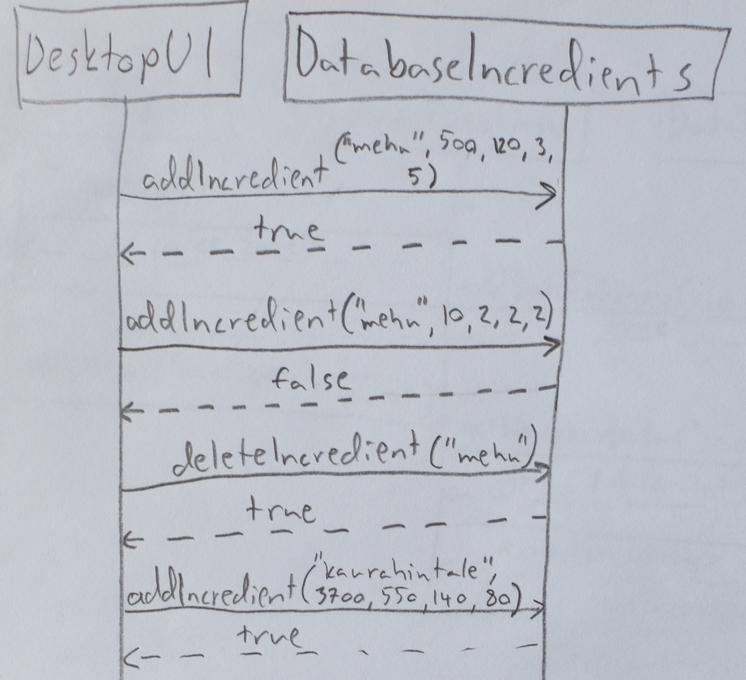 DesktopUI
DatabaseIncredients
addIncredient("mehu", 500, 120, 3,
5)
true
addIncredient("mehu", 10, 2, 2, 2)
false
deleteIncredient("mehu")
true
addIncredient("kaurahiutale",
3700, 550, 140, 80)
true